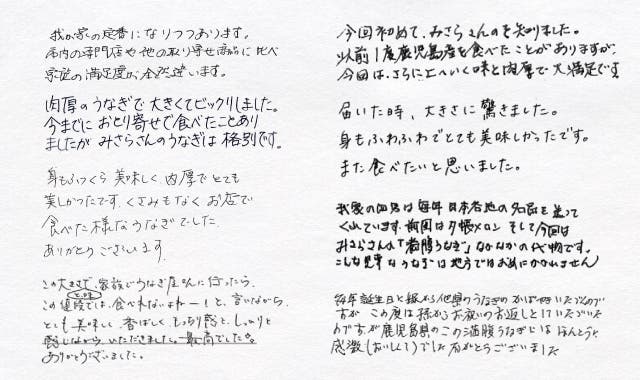 我が家の定番になりつつあります。
市内の専門店や他の取り寄せ商品に比べ
家族の満足度が全然違います。
肉厚のうなぎで大きくてビックリしました。
今までにおとり寄せで食べたことあり
ましたがみさらさんのうなぎは格別です。
身もふっくら美味しく、肉厚でとても
美しかったです。くさみもなくお店で
食べた様なうなぎでした
ありがとうございます
この大きさで、家族でうなぎ屋さんに行ったら、
と、味
この値段では、食べれないよねーーと、言いながら、
とても美味しく、香ばしく、もっちり感と、しっとり
感じながらいただきました。最高でした。
ありがとうございました。
今回初めて、みさらさんのを知りました。
以前1度鹿児島産を食べたことがありますが、
今回は、さらに上へいく味と肉厚で大満足です
届いた時、大きさに驚きました。
身もふわふわでとても美味しかったです。
また食べたいと思いました。
我家の四男は毎年日本各地の名品を送って
くれています。前回は夕張メロン そして今回は
みさらさんの「満腹うなぎ」なかなかの代物です。
こんな見事なうなぎは地方ではおめにかかれません
毎年誕生日と娘から他県のうなぎのかば焼いただくので
すが この度は孫からお祝いのお返しとしていただいた
のですが鹿児島県のこの満腹うなぎにはほんとうに
感激(おいしくて)でした ありがとうございました